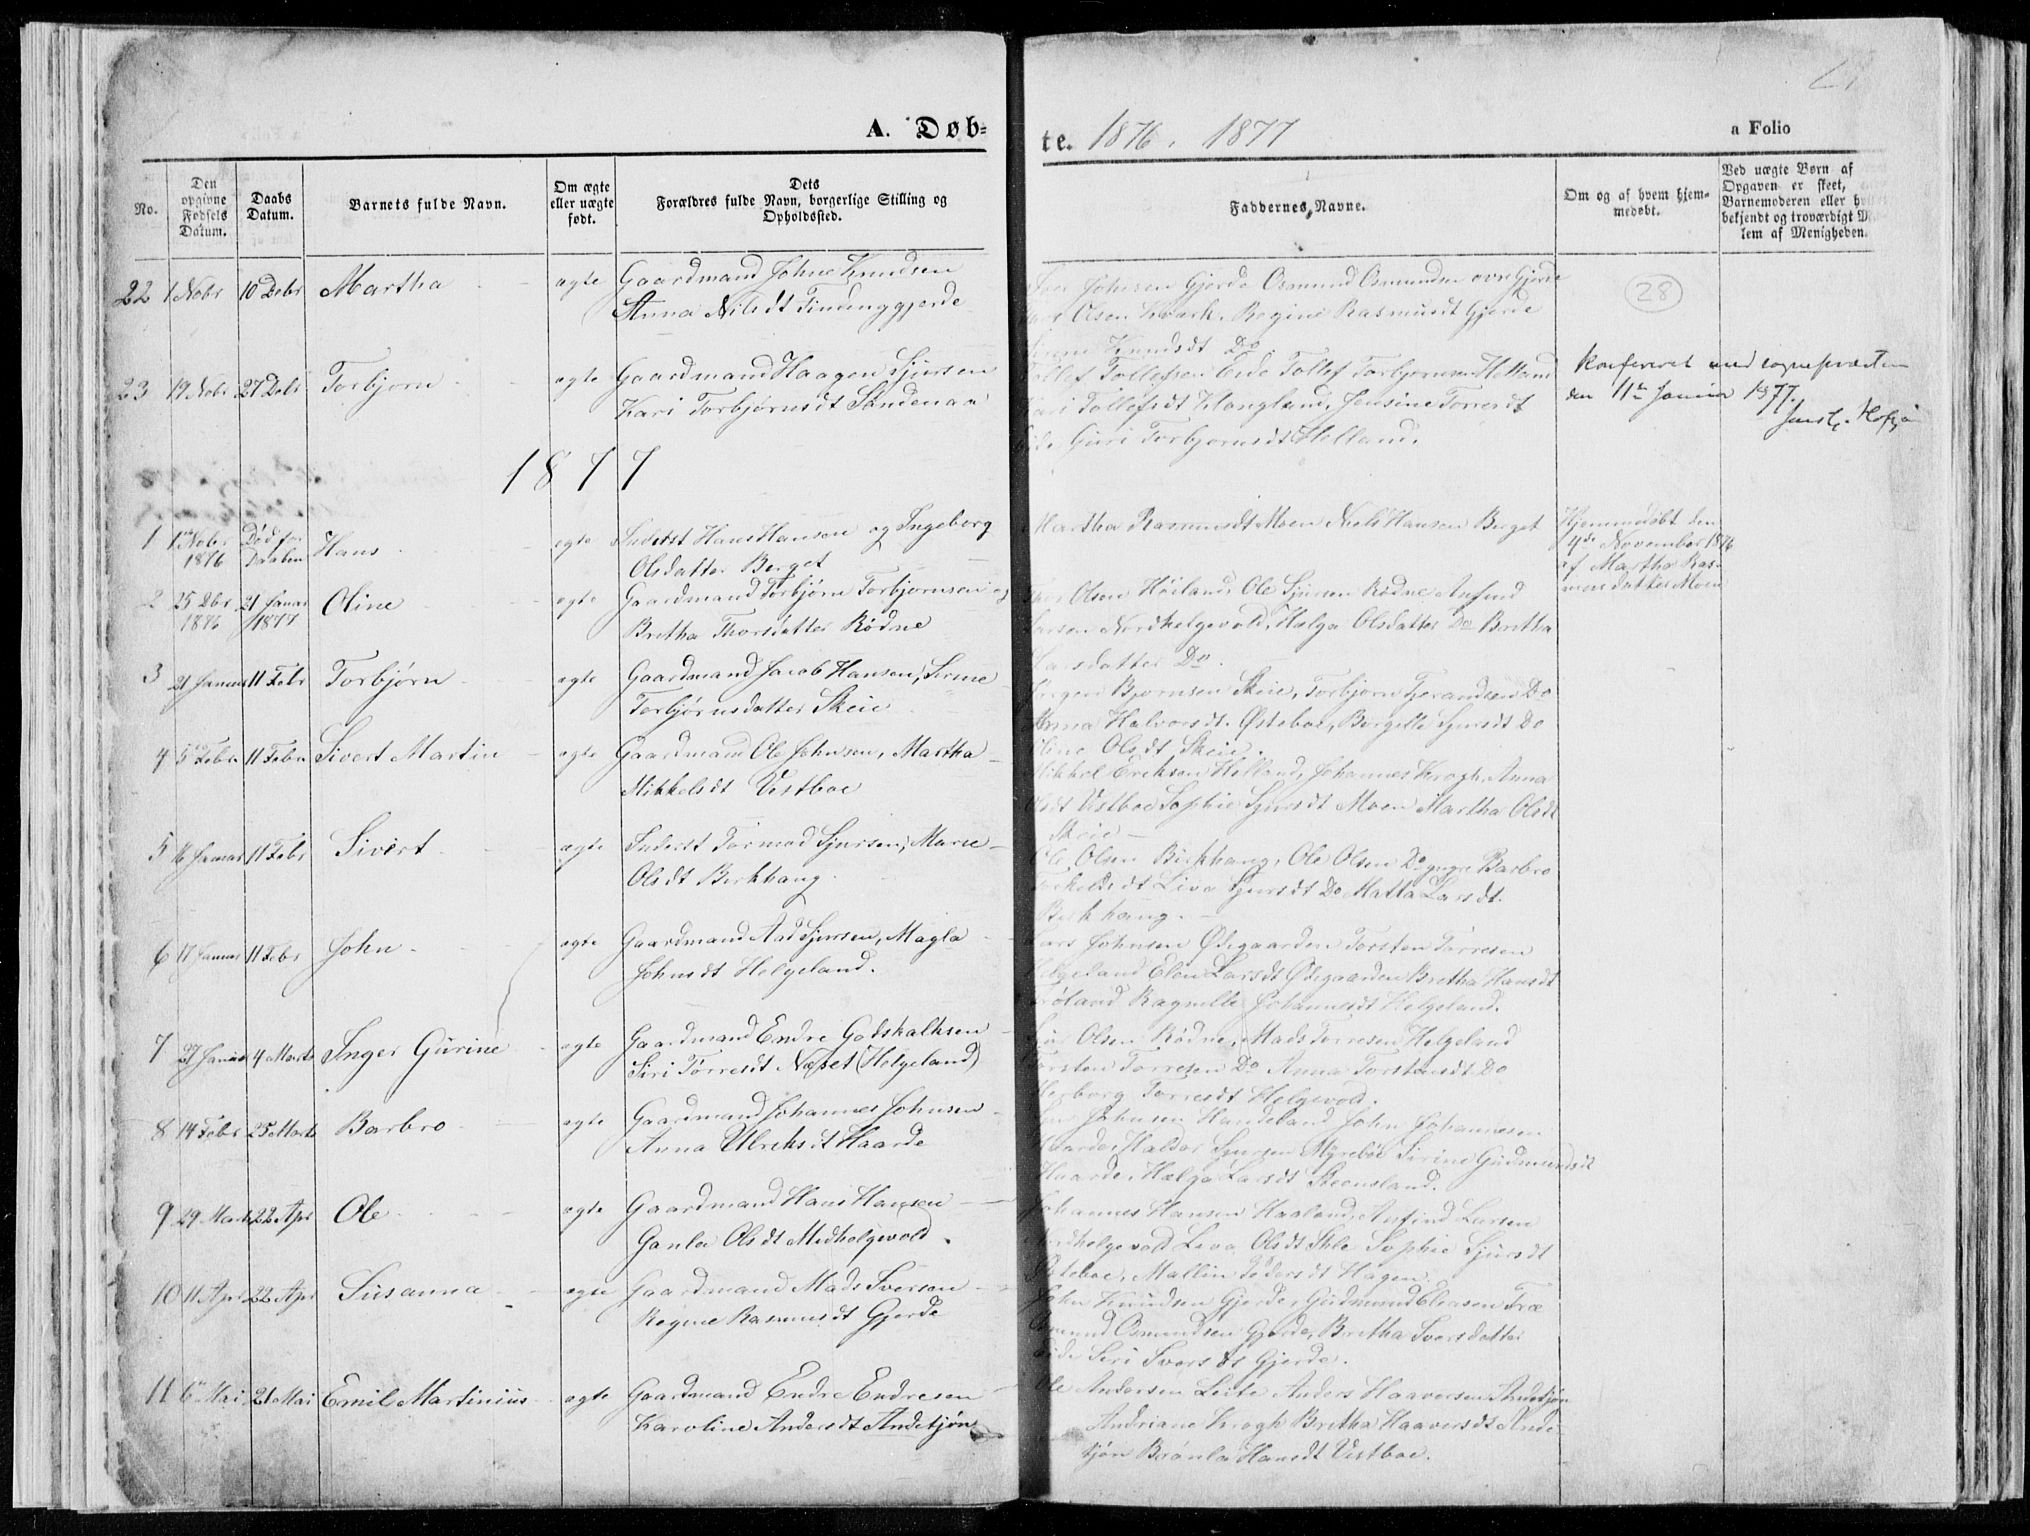 A. Døb-
No.
Den opgivne Fødsels Datum.
Daabs Datum.
Barnets fulde Navn.
Om ægte eller uægte født.
Dets
Forældres fulde Navn, borgerlige Stilling og
Opholdssted.
22 1 Nobr 10 Debr Martha ægte Gaardmand Johne Knudsen
Anna Nilsdt
23 19 Nobr 27 Debr Torbjørn ægte Gaardmand Haagen Sjursen
Kari Torbjørnsdt Søndenaa
1877
1 1ste Nobr 1876 Død før Daaben Hans ægte Inderst Hans Hansen og Ingeborg
Olsdatter Berget
2 25 Dbr 1876 21 Januar 1877 Oline ægte Gaardmand Torbjørn Torbjørnsen og
Bretha Thorsdatter Rødne
3 21 Januar 11 Febr Torbjørn ægte Gaardmand Jacob Hansen, Serine
Torbjørnsdatter Skeie
4 5te Febr 11 Febr Sivert Martin ægte Gaardmand Ole Johnsen, Martha
Mikkelsdt Vestboe
5 16 Januar 11 Febr Sivert ægte Inderst Tormod Sjursen, Marie
Olsdt Berkhaug
6 17 Januar 11 Febr John ægte Gaardmand Aad Sjursen, Magla
Johnsdt Helgeland.
7 27 Januar 4 Marts Inger Gurine ægte Gaardmand Endre Godskalksen
Siri Torresdt Næset (Helgeland)
8 14 Febr 25 Marts Barbro ægte Gaardmand Johannes Johnsen
Anna Ulriksdt Haarde
9 29 Marts 22 Apr Ole ægte Gaardmand Hans Hansen
Gunla Olsdt Medhelgevold.
10 11 Apr 22 Apr Susanna ægte Gaardmand Mads Iversen
Regine Rasmusdt Gjerde
11 6te Mai 21 Mai Emil Martinius ægte Gaardmand Endre Endresen
Karoline Andersdt Andetjøn
te. 1876. 1877
a Folio
Faddernes Navne.
Om og af hvem hjem-
medøbt.
Ved uægte Børn af
Opgaven er skeet,
Barnemoderen eller
bekjendt og troværdigt
lem af Menigheden.
28
Johnsen Gjerde Osmund Osmundsen øvre Gjerde
Olsen Kvark, Regine Rasmusdt Gjerde
Knudsdt Do
Tollefsen Eide Tollef Torbjørnsen Helland
Tollefsdt Klongland, Jensine Torresdt
Guri Torbjørnsdt Helland.
konfereret med sognepræsten
den 11te Januar 1877.
Martha Rasmusdt Moen Niels Hansen Berget
Hjemmedøbt den
4de November 1876
af Martha Ras-
musdatter Moen
Olsen Høiland, Ole Sjursen Rødne Anfind
Larsen Nordhelgevold, Helga Olsdatter Do Bretha
Larsdatter Do.
Bjørnsen Skeie, Torbjørn Do
Anna Halvorsdt. Østeboe, Borgille Sjursdt Do
Oline Olsdt Skeie.
Mikkel Eriksen Helland, Johannes Krogh, Anna
Olsdt Vestboe Sophie Sjursdt Moen Martha Olsdt
Skeie
Ole Olsen Birkhaug, Ole Olsen Do yngre Barbro
Torkildsdt Liva Sjursdt Do Malla Larsdt.
Birkhaug.
Lars Johnsen Ødegaarden Torsten Torresen
Helgeland Elen Larsdt Ødegaarden Bretha Hansdt
Ragnille Johannesdt Helgeland.
Olsen Rødne, Mads Torresen Helgeland
Torsten Torresen Do Anna Torstensdt Do
Herborg Torresdt Helgevold.
Johnsen Handeland John Johannesen
Haarde, Haldor Sjursen Myrebøe Sirine Gudmundsdt
Haarde, Helga Larsdt Steensland.
Johannes Hansen Haaland, Anfind Larsen
Nordhelgevold Liva Olsdt Sophie Sjursdt
Østeboe, Mallin Pedersdt Hagen
John Knudsen Gjerde, Gudmund
Osmund Osmundsen Gjerde, Bretha Iversdatter
Eide Siri Iversdt Gjerde.
Ole Andersen Leite Anders Haaversen Andetjøn
Andriane Krogh Bretha Haaversdt Ande-
tjøn Hansdt Vestboe.